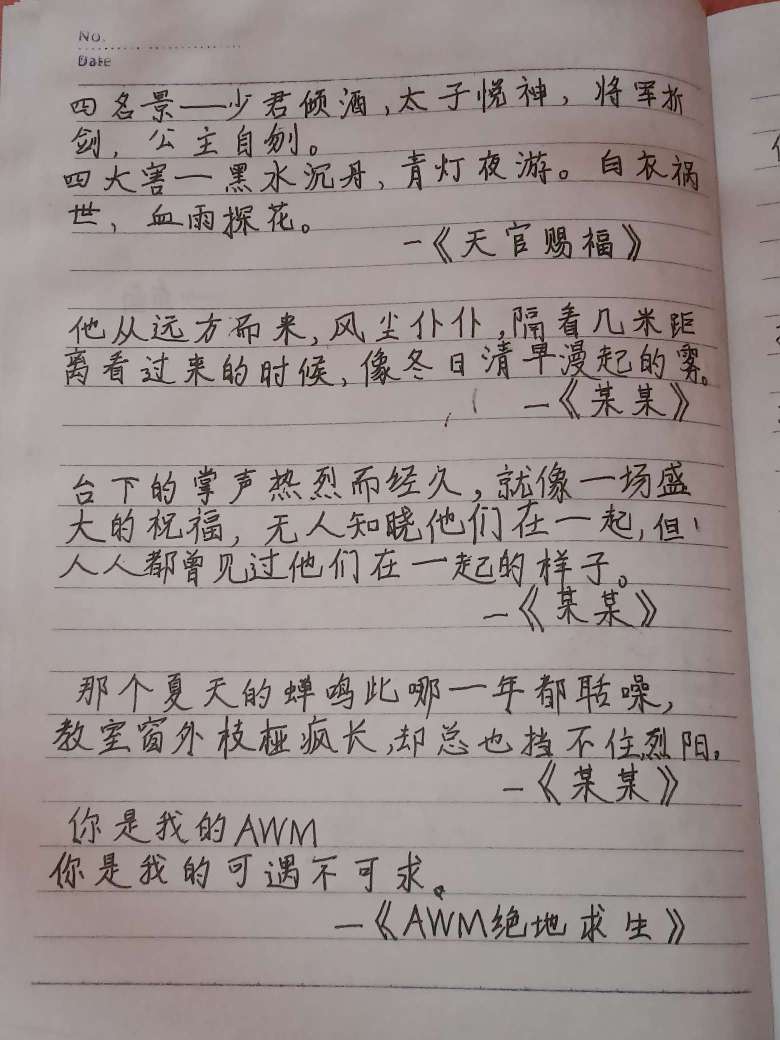 No.
Date
四名景——少君倾酒,太子悦神,将军折
剑,公主自刎。
四大害—黑水沉舟,青灯夜游。白衣祸
世,血雨探花。
—《天官赐福》
他从远方而来,风尘仆仆,隔着几米距
离看过来的时候,像冬日清早漫起的雾。
—《某某》
台下的掌声热烈而经久,就像一场盛
大的祝福,无人知晓他们在一起,但
人人都曾见过他们在一起的样子。
—《某某》
那个夏天的蝉鸣比哪一年都聒噪,
教室窗外枝桠疯长,却总也挡不住烈阳。
—《某某》
你是我的AWM
你是我的可遇不可求。
—《AWM绝地求生》